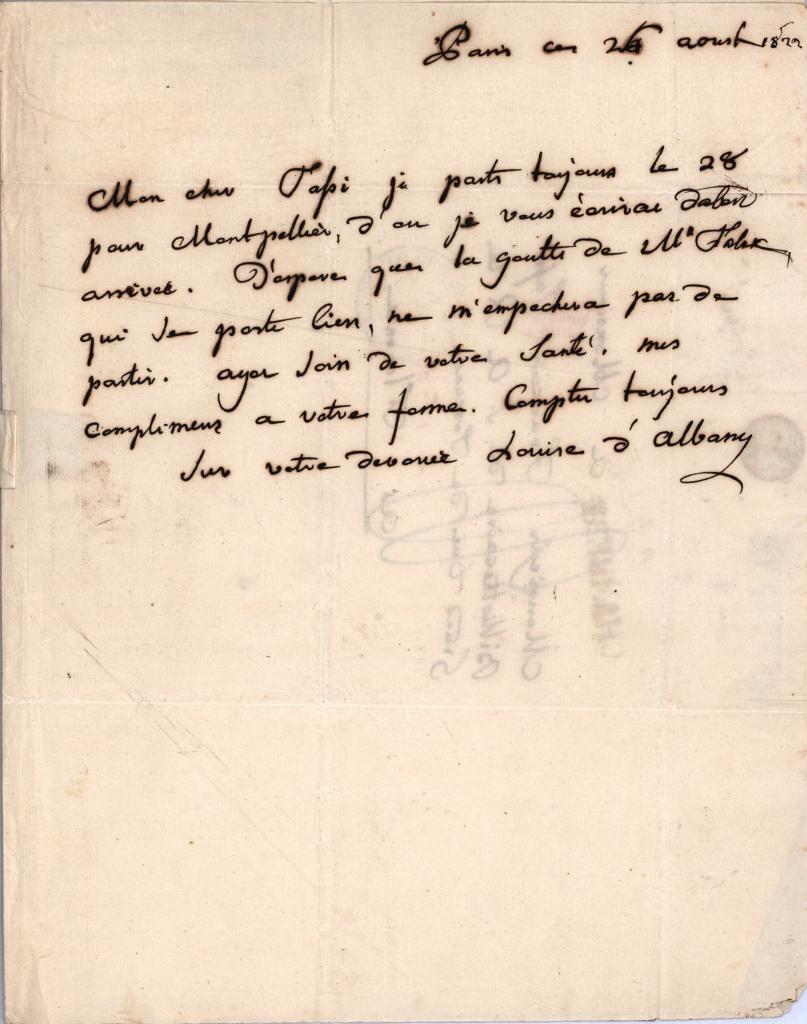 Paris ce 26 aoust 1822
Mon cher Tassi je parts toujours le 28
pour Montpellier, d'ou je vous écrirai dabort
arrivée. J'espere que la goutte de Mr
qui se porte bien, ne m'empechera pas de
partir. ayez soin de votre Santé. mes
complimens a votre femme. Comptez toujours
sur votre devouée Louise d'Albany